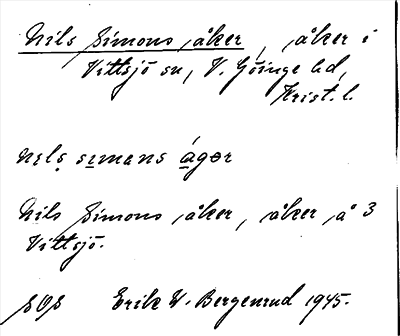 Nils Simons åker, åker i
Vittsjö sn, V. Göinge hd,
Krist. l.
nıls sımans ágər
Nils Simons åker, åker å 3
Vittsjö.
SOS Erik W. Bergenrud 1945.